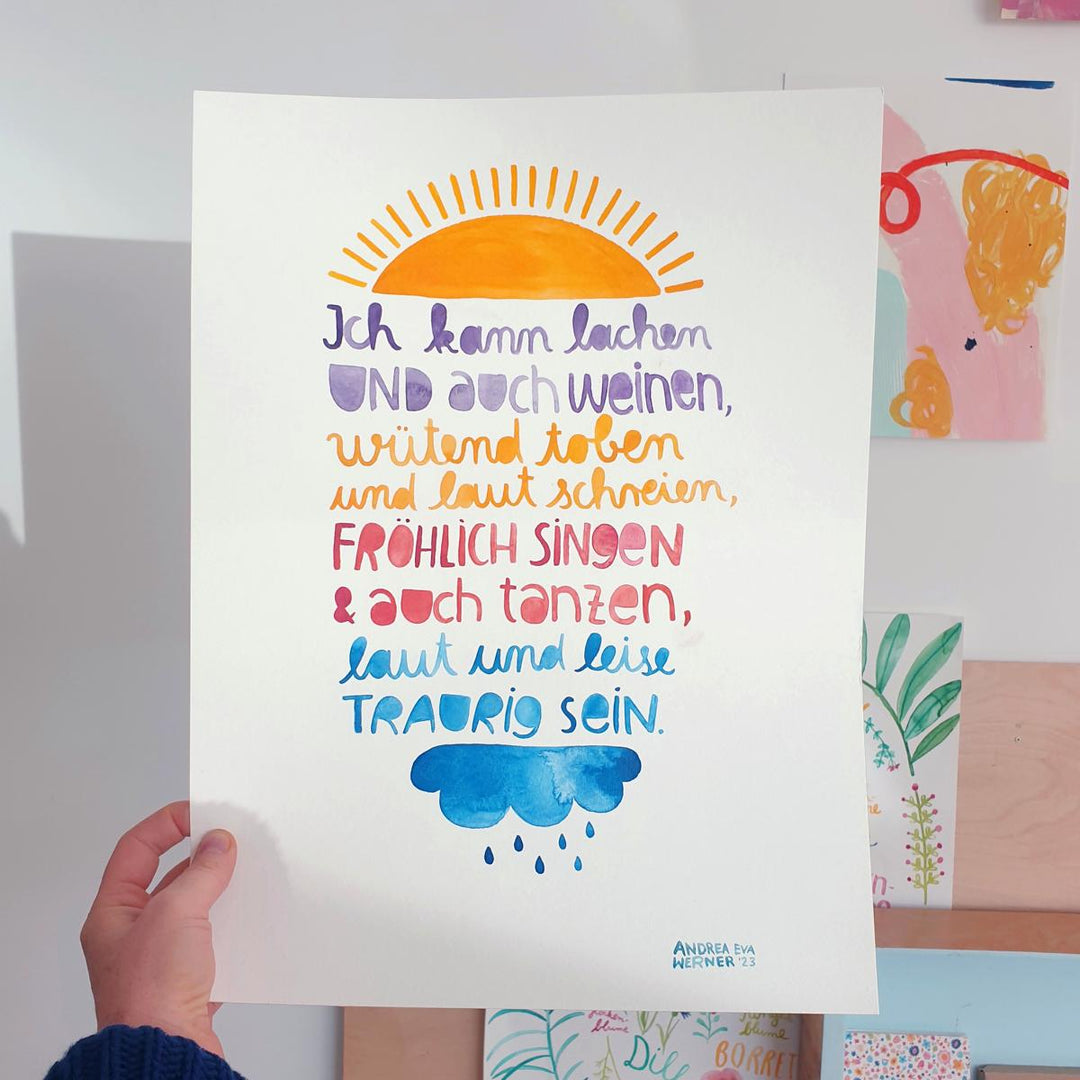 Ich kann lachen
UND auch weinen,
wütend toben
und laut schreien,
FRÖHLICH SINGEN
& auch tanzen,
laut und leise
TRAURIG SEIN.
ANDREA EVA
WERNER '23
blume
blume
Dill
BORRET